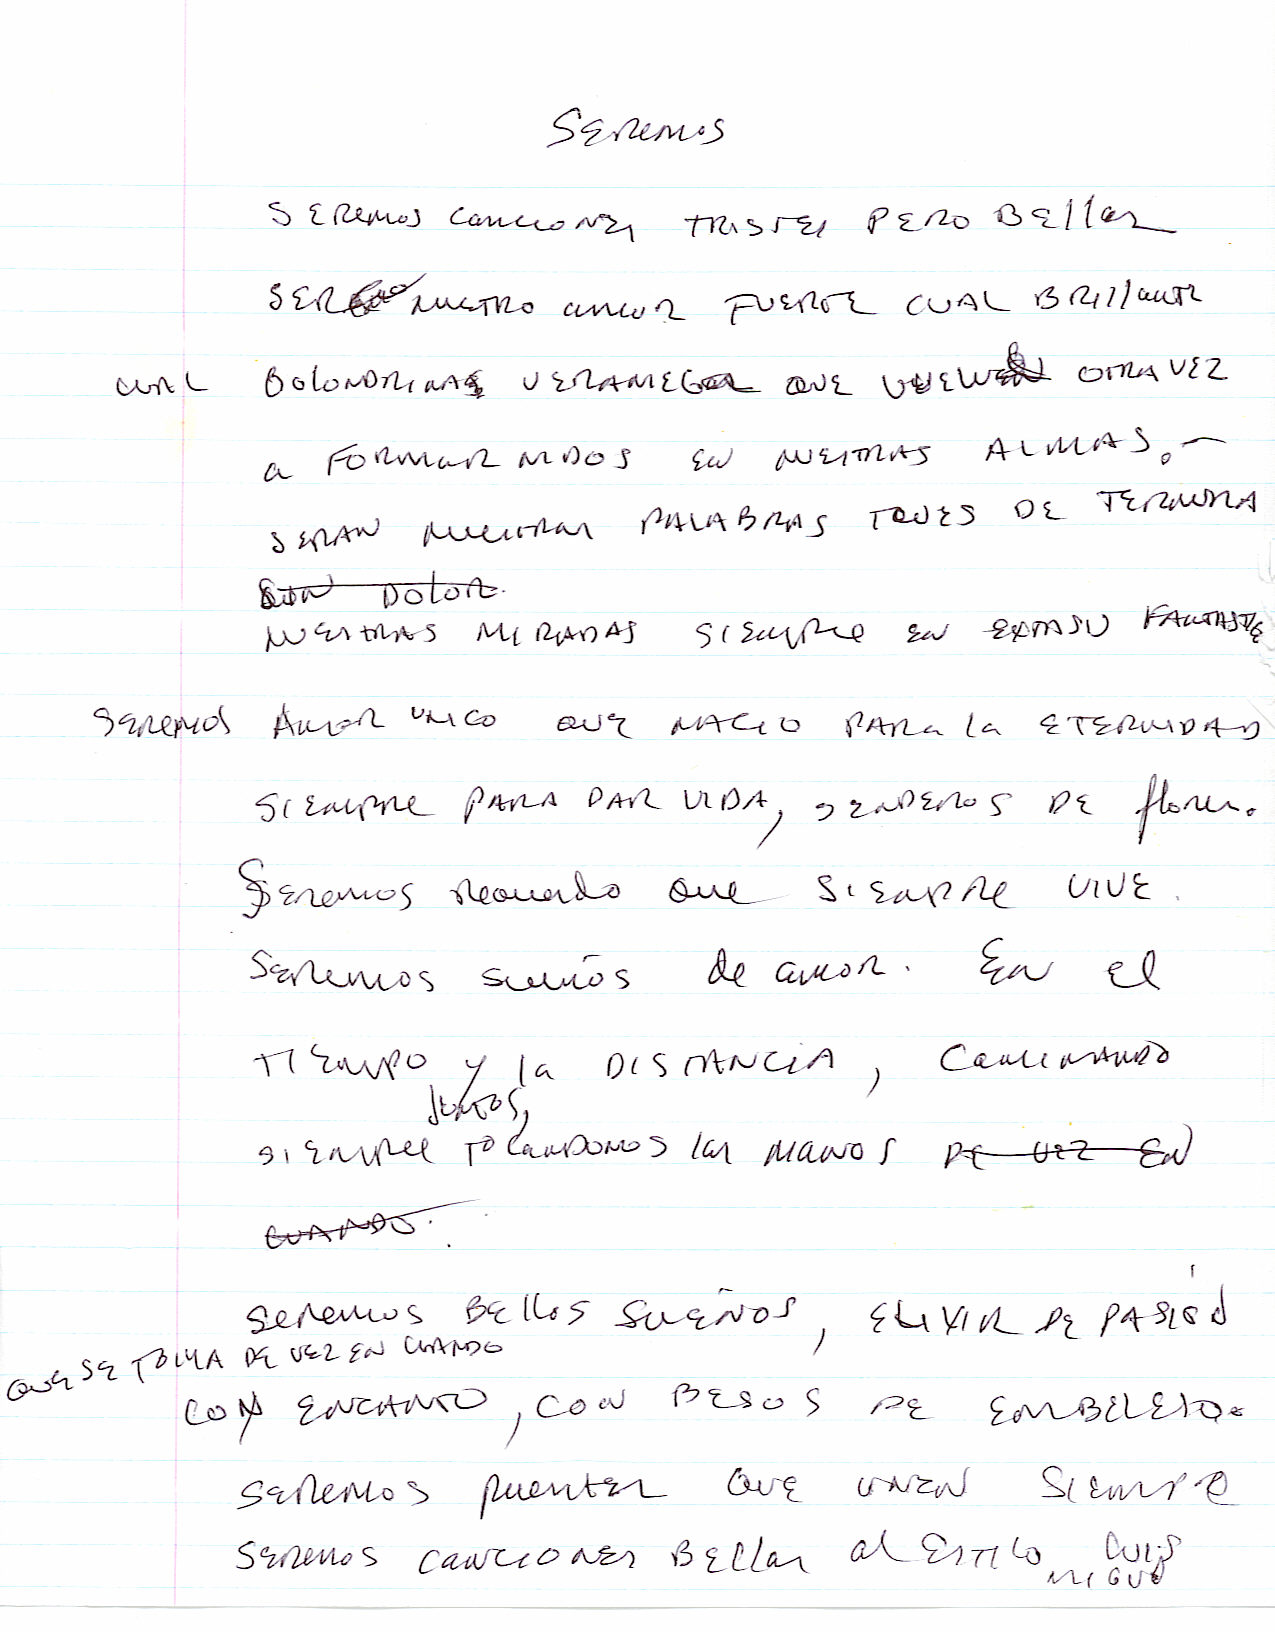 Seremos
Seremos canciones tristes pero bellas
Será nuestro amor fuerte cual brillante
cual golondrinas veraniegas que vuelven otra vez
a formar nidos en nuestras almas.
Seran nuestras palabras toques de ternura
sin dolor.
nuestras miradas siempre en extasis
Seremos Amor unico que nacio para la eternidad
siempre para dar vida, senderos de flores.
Seremos recuerdo que siempre vive.
Seremos sueños de amor. En el
tiempo y la distancia, caminando
juntos,
siempre tocandonos las manos de vez en
cuando.
Seremos Bellos sueños, elixir de pasión
que se toma de vez en cuando
con encanto, con besos de embeleso.
Seremos puentes que unen siempre
Seremos canciones Bellas al estilo Luis
Miguel